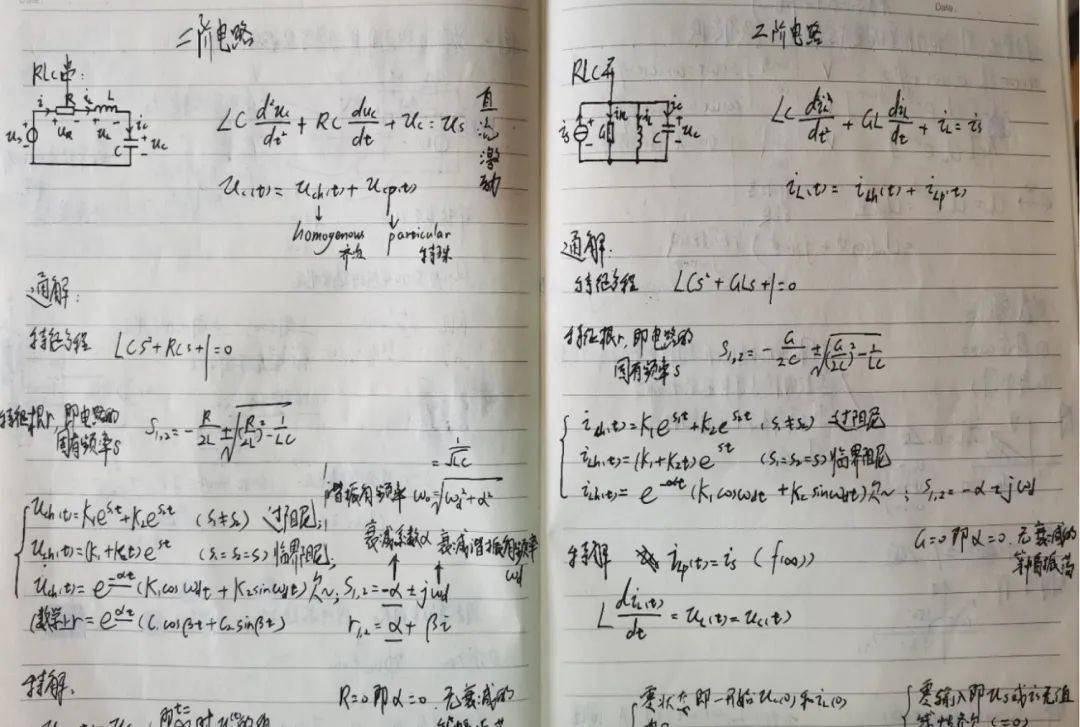 二阶电路
RLC串:
i R iL L
us + uR - + uL - iC + uC - C
LC d²uc/dt² + RC duc/dt + uc = us
直流激励
uc(t) = uch(t) + ucp(t)
homogenous particular
齐次 特殊
通解:
特征方程 LCS² + RCS + 1 = 0
特征根r, 即电路的
固有频率S
S1,2 = - R/2L ± √((R/2L)² - 1/LC)
= 1/√LC
谐振角频率 ω0 = √(ωd² + α²)
uch(t) = K1e^s1t + K2e^s2t (s1≠s2) 过阻尼;
衰减系数α 衰减谐振角频率
ωd
uch(t) = (K1 + K2t)e^st (s1=s2=s) 临界阻尼;
uch(t) = e^-αt (K1cosωdt + K2sinωdt) 欠~; S1,2 = -α ± jωd
(数学上r = e^αt (C1cosβt + C2sinβt) r1,2 = α ± βi
特解:
R=0即α=0. 无衰减的
Date.
二阶电路
RLC并
is + G iR iL L iC C + uc -
LC d²iL/dt² + GL diL/dt + iL = is
iL(t) = iLh(t) + iLp(t)
通解:
特征方程 LCS² + GLS + 1 = 0
特征根r, 即电路的
固有频率S
S1,2 = - G/2C ± √((G/2C)² - 1/LC)
iLh(t) = K1e^s1t + K2e^s2t (s1≠s2) 过阻尼
iLh(t) = (K1 + K2t)e^st (s1=s2=s) 临界阻尼
iLh(t) = e^-αt (K1cosωdt + K2sinωdt) 欠~; S1,2 = -α ± jωd
G=0即α=0. 无衰减的
等幅振荡
特解 iLp(t) = is (f(∞))
L diL(t)/dt = uL(t) = uc(t)
零状态即一开始uc(0)和iL(0)
零输入即us或is无值